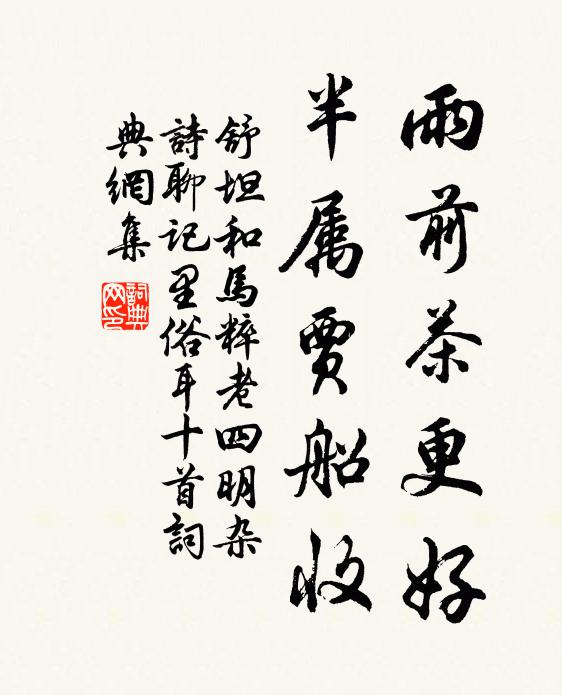 雨前茶更好
半属賈船收
舒坦和馬粹老四明杂
詩聊記里俗耳十首詞
典網集
詞典网印